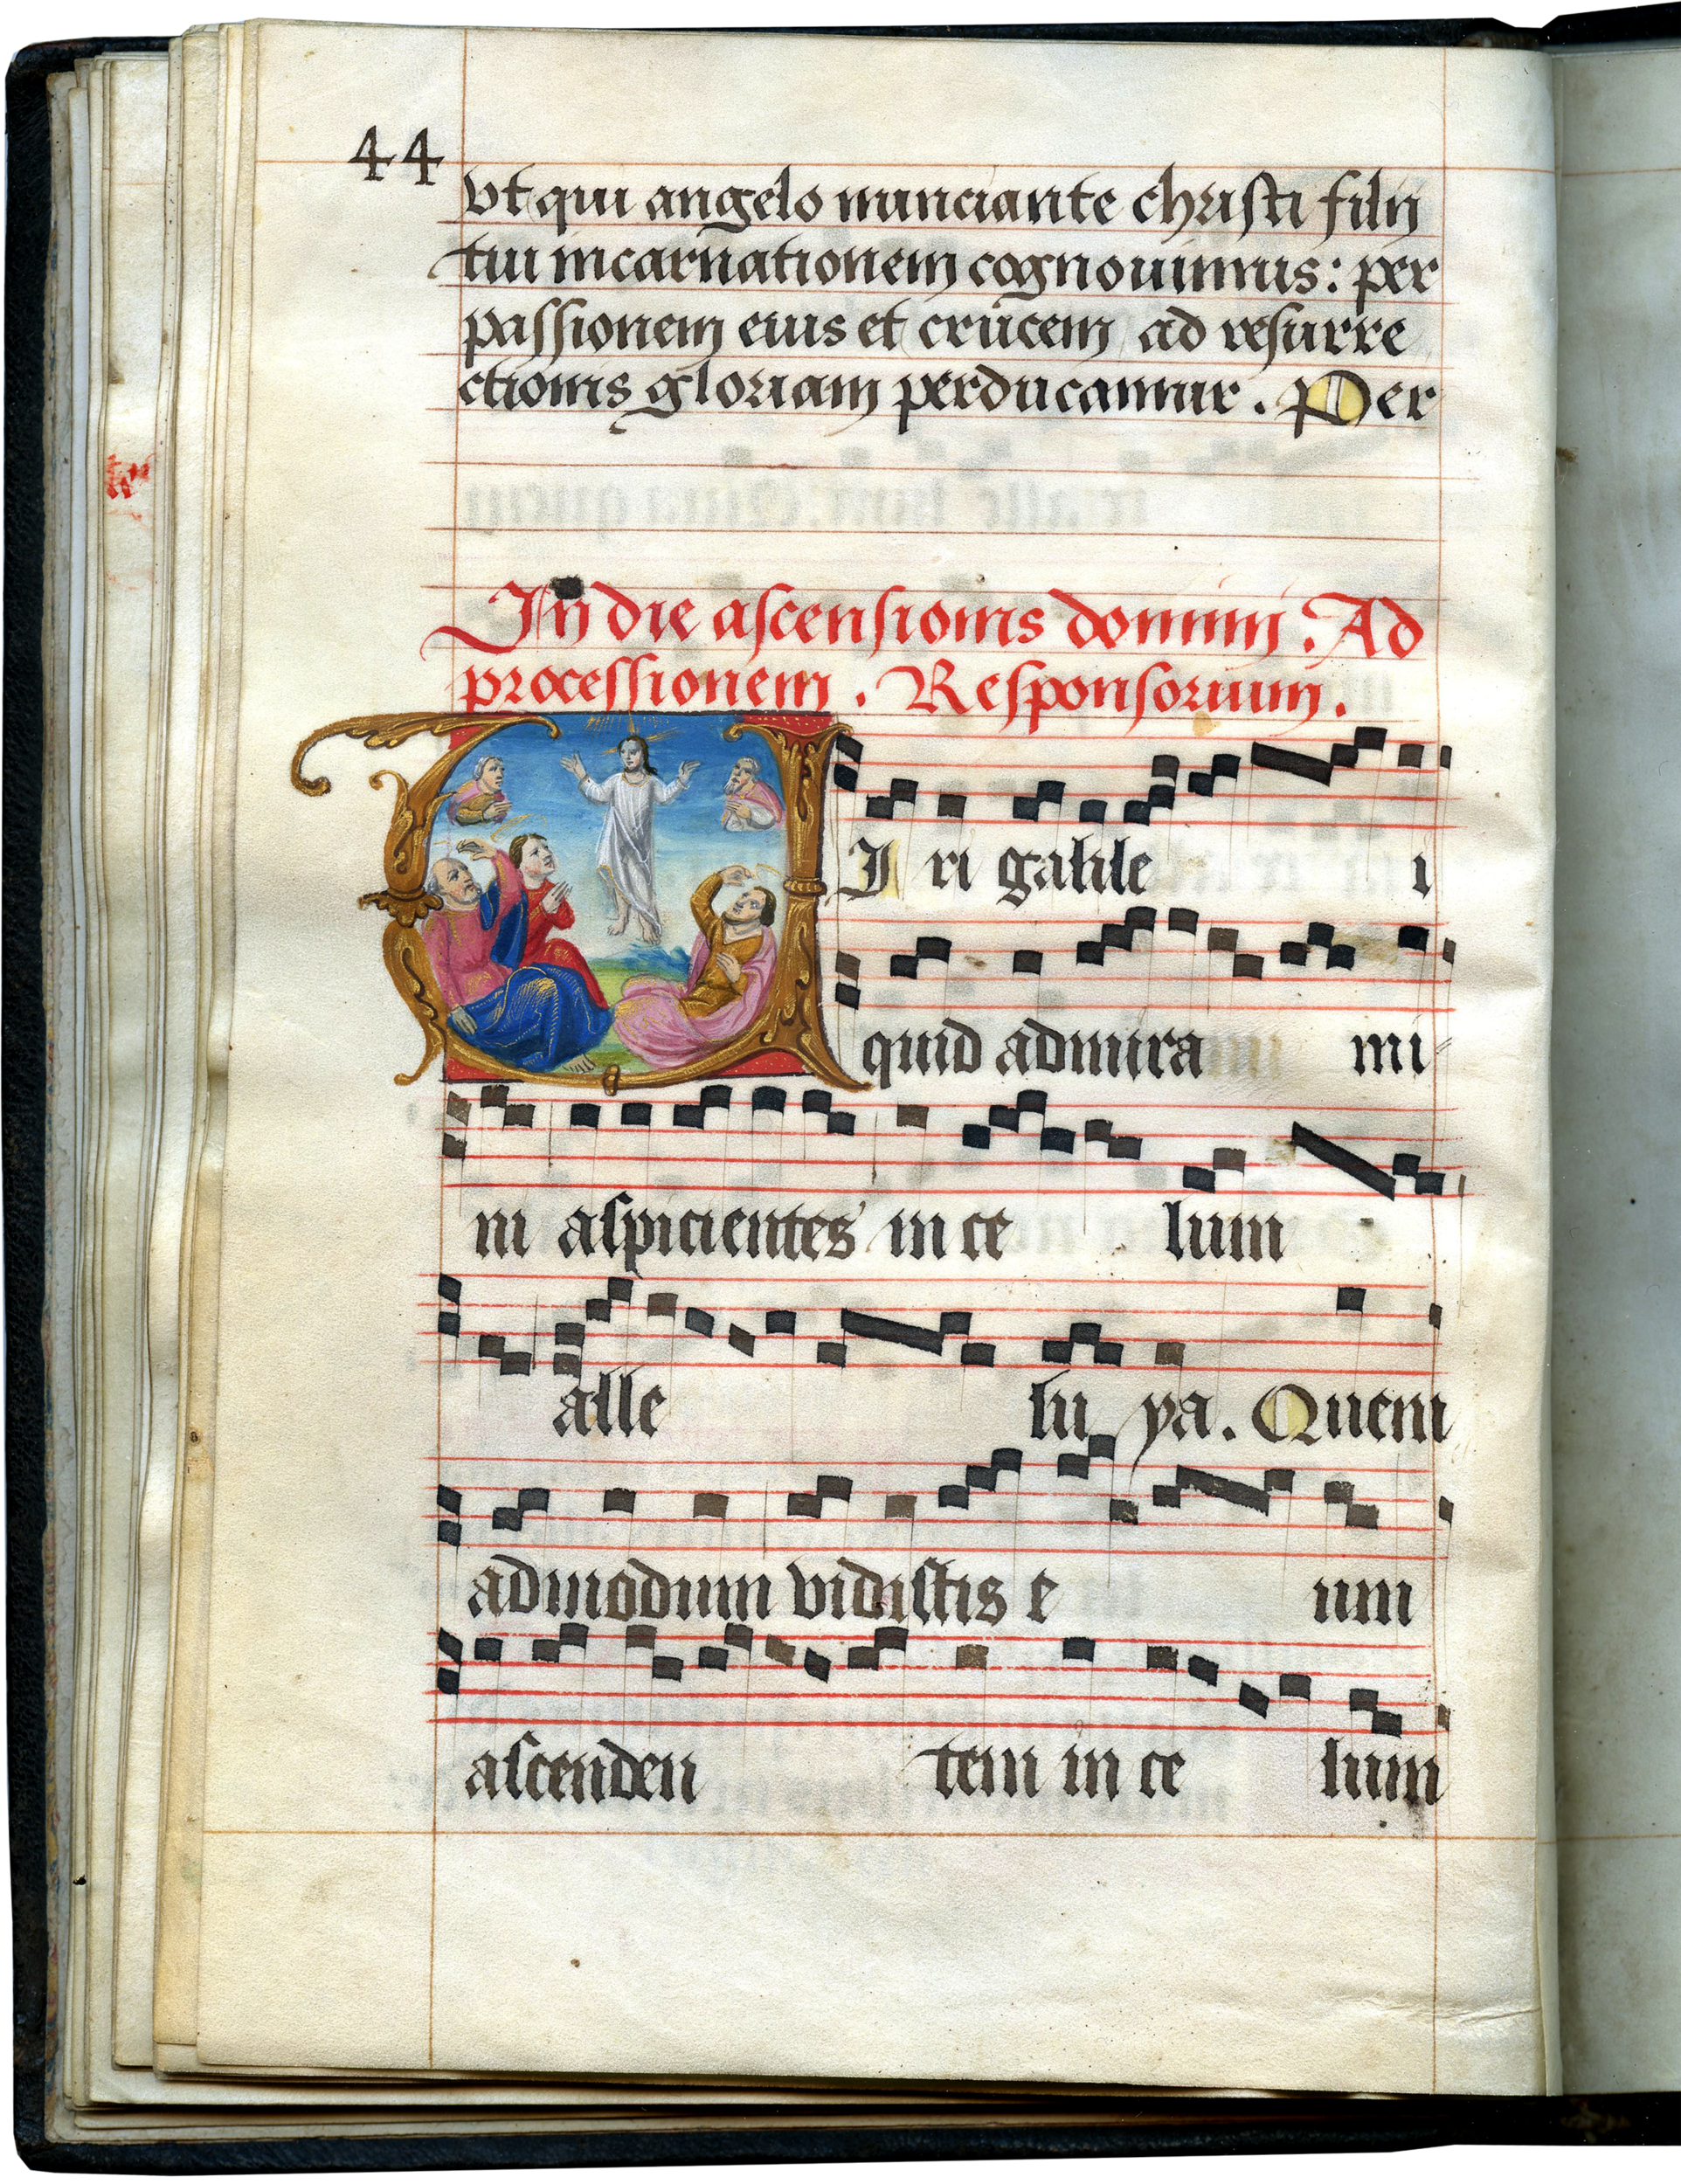 44
vt qui angelo nunciante christi filij
tui incarnationem cognouimus: per
passionem eius et crucem ad resurre
ctionis gloriam perducamur. Per
In die ascensionis domini. Ad
processionem. Responsorium.
VI ri galile i
quid admira mi-
ni aspicientes in ce lum
alle lu ya. Quem
admodum vidistis e um
ascenden tem in ce lum